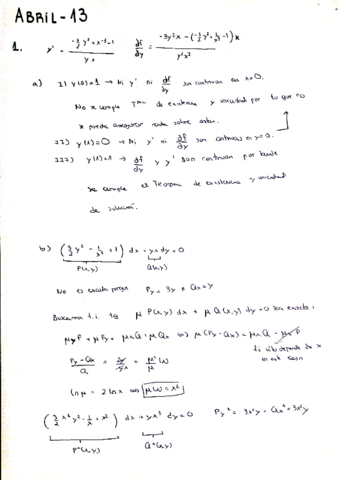 ABRIL-13
1. y' = (-3/2 y² + x⁻³ - 1) / yx   ∂f/∂y = (-3y²x - (-3/2 y² + 1/x³ - 1) x) / y²x²
a) I) y(0)=1 → Ni y' ni ∂f/∂y son continuas en x=0.
No se cumple T de existencia y unicidad por lo que no
se puede asegurar nada sobre
II) y(1)=0 → Ni y' ni ∂f/∂y son continuas en y=0.
III) y(1)=1 → ∂f/∂y y y' son continuas por tanto
se cumple el Teorema de existencia y unicidad
de solución.
b) (3/2 y² - 1/x³ + 1) dx + yx dy = 0
P(x,y) Q(x,y)
No es exacta porque Py = 3y ≠ Qx = y
Buscamos f.i. tq μ P(x,y) dx + μ Q(x,y) dy = 0 sea exacta.
μyP + μPy = μxQ + μQx ⇔ μ(Py - Qx) = μxQ - μyP
si sólo depende de x
en este caso
(Py - Qx)/Q = 2y/yx = μ'/μ (x)
ln μ = 2 ln x ⇔ μ(x) = x²
(3/2 x² y² - 1/x + x²) dx + yx³ dy = 0   Py* = 3x²y = Qx* = 3x²y
P*(x,y) Q*(x,y)